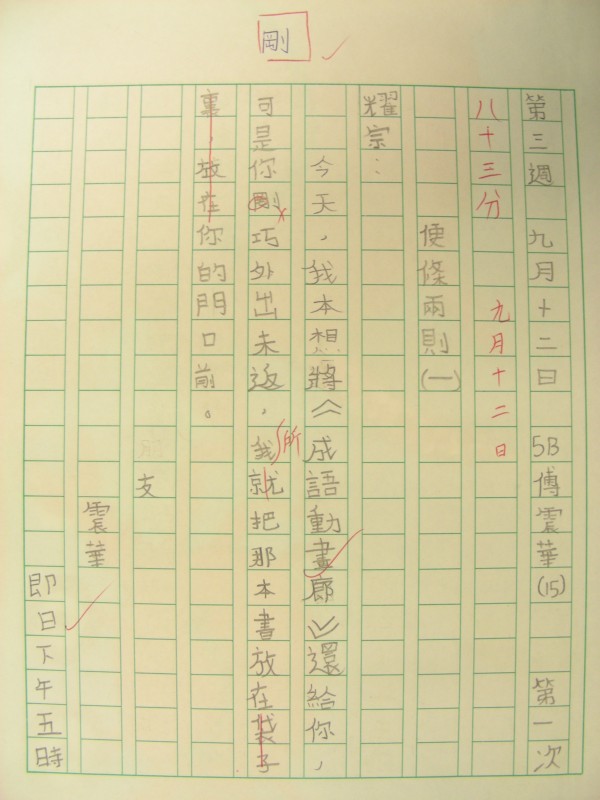 剛
第三週 九月十二日 5B傅震華(15) 第一次
八十三分 九月十二日
便條兩則(一)
耀宗：
今天，我本想將《成語動畫廊》還給你，
可是你剛巧外出未返，我就把那本書放在袋子
所
裏，放在你的門口前。
友
震華
即日下午五時